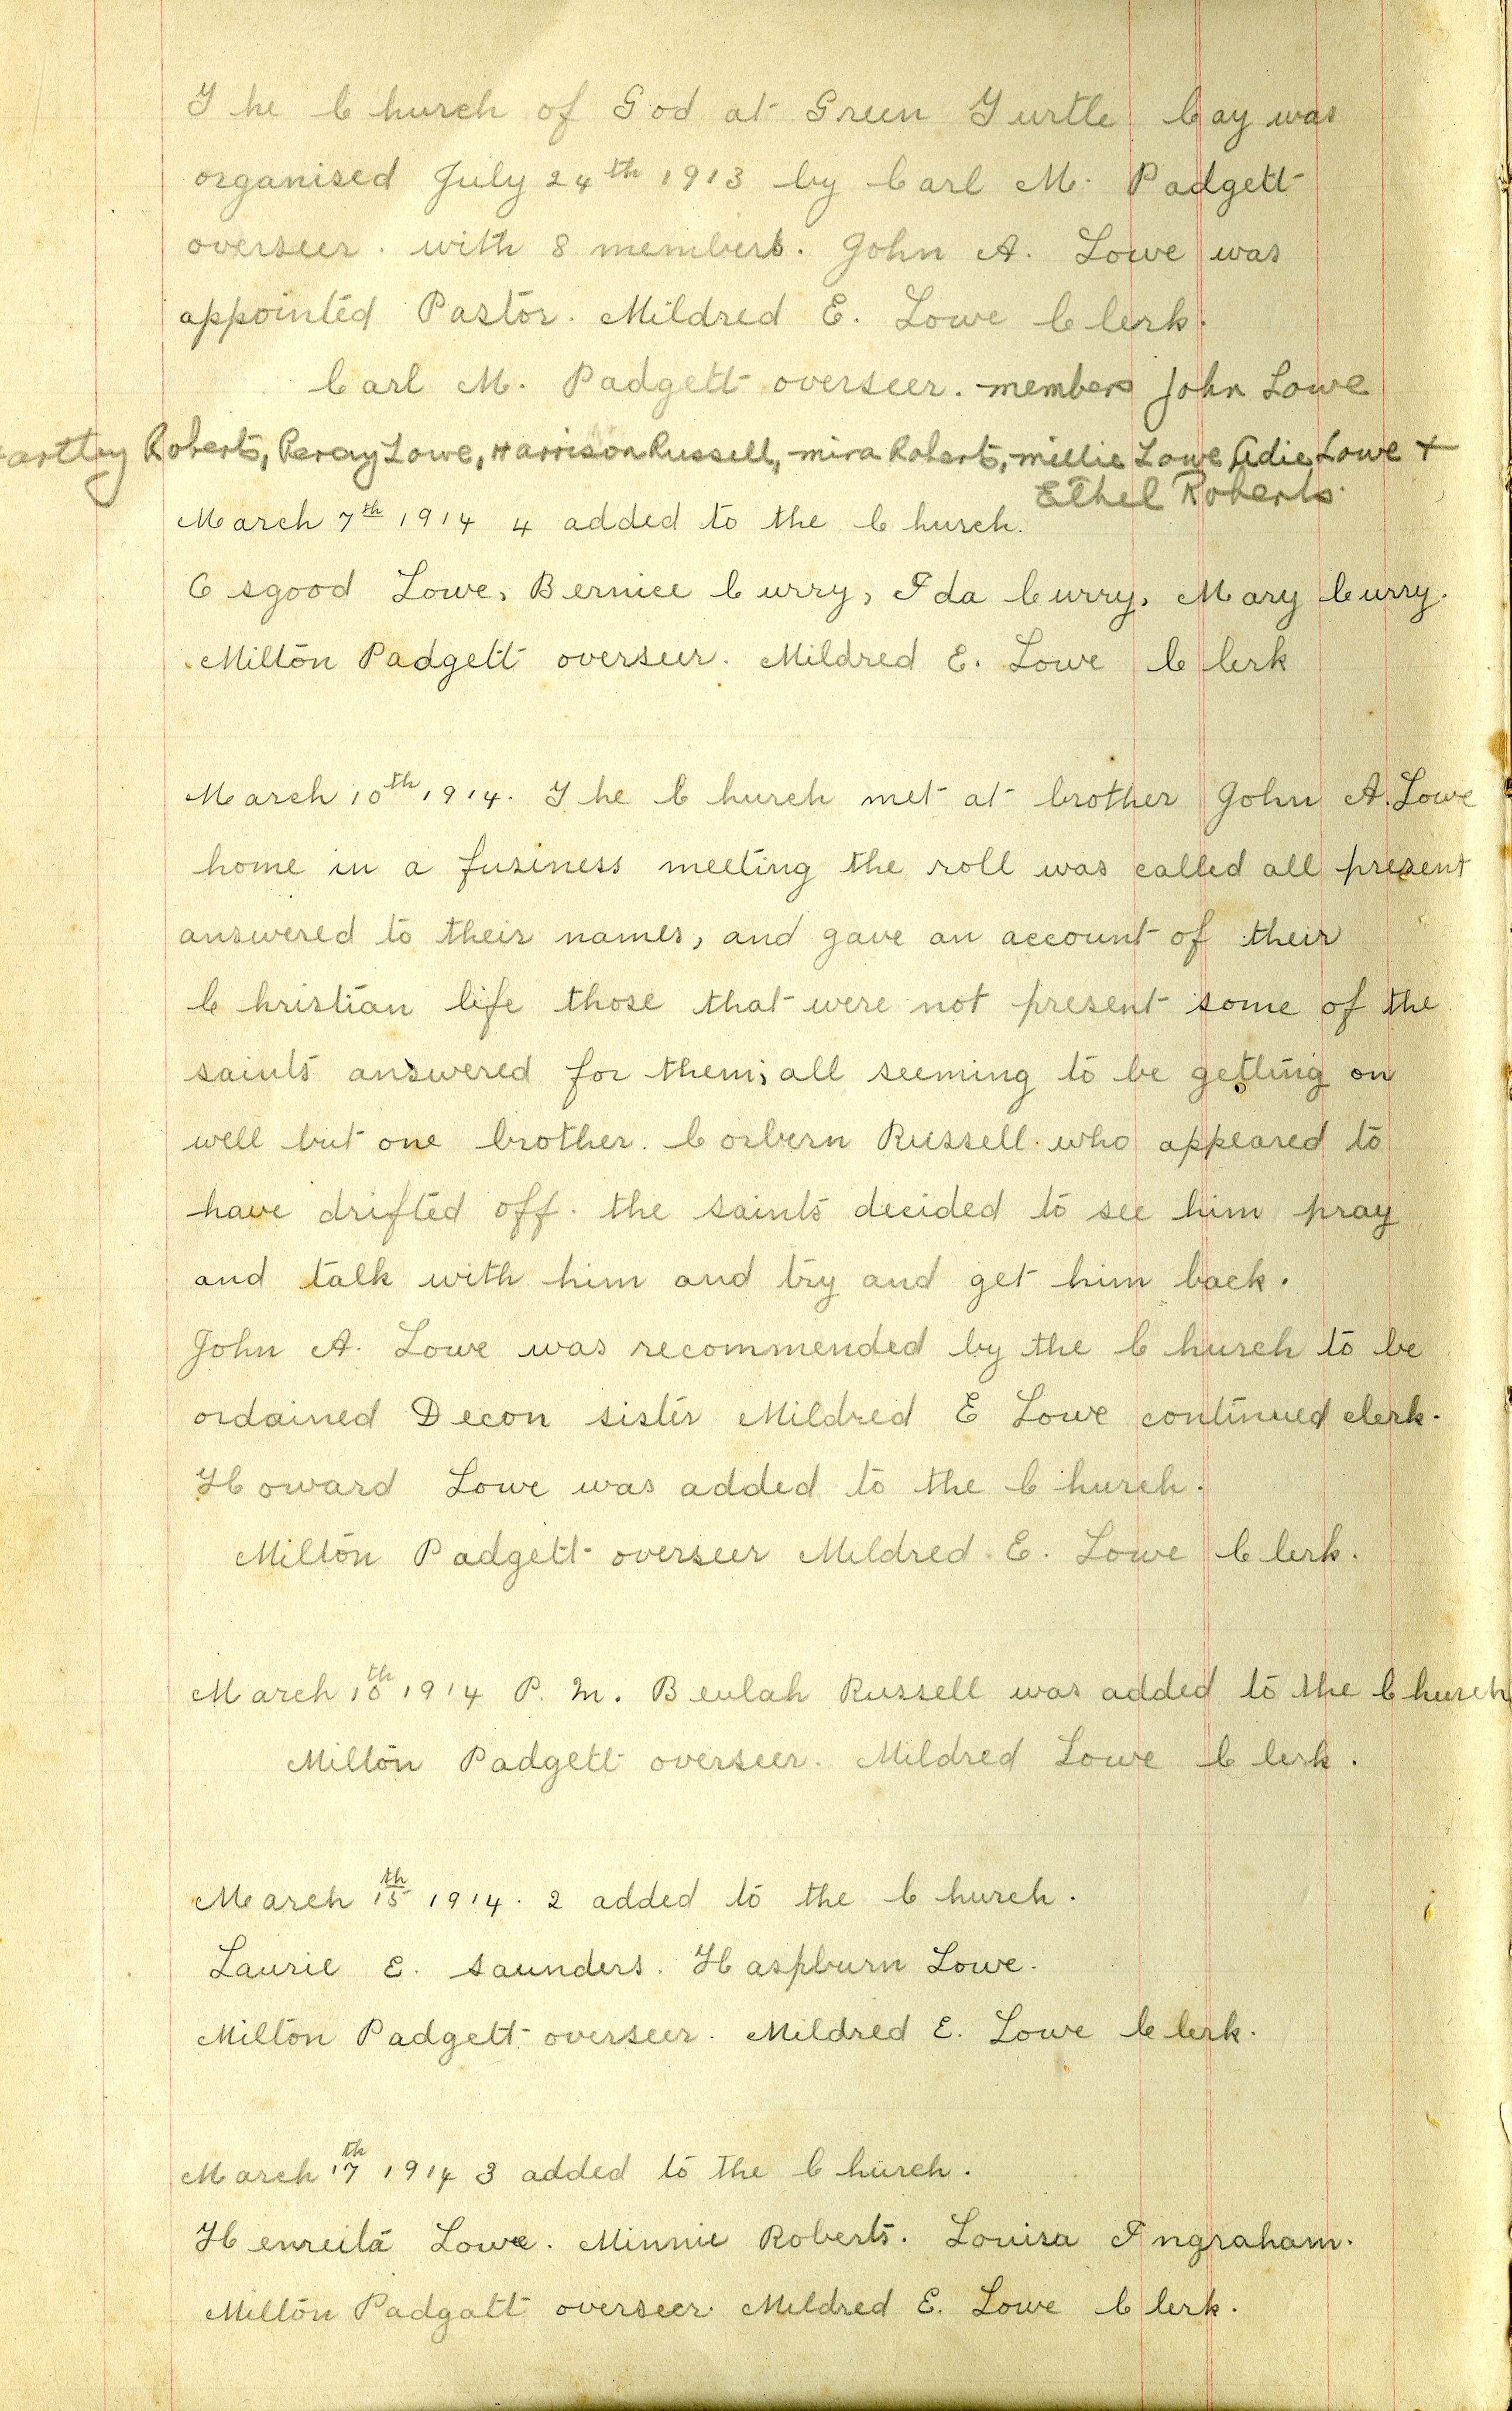 The Church of God at Green Turtle Cay was
organised July 24th 1913 by Carl M. Padgett
overseer. with 8 members. John A. Lowe was
appointed Pastor. Mildred E. Lowe Clerk.
Carl M. Padgett overseer. members John Lowe
artley Roberts, Percy Lowe, Harrison Russell, mira Roberts, millie Lowe Adie Lowe +
Ethel Roberts.
March 7th 1914 4 added to the Church.
Osgood Lowe, Bernice Curry, Ida Curry, Mary Curry.
Milton Padgett overseer. Mildred E. Lowe Clerk
March 10th 1914. The Church met at brother John A. Lowe
home in a fusiness meeting the roll was called all present
answered to their names, and gave an account of their
Christian life those that were not present some of the
saints answered for them; all seeming to be getting on
well but one brother. Corbern Russell. who appeared to
have drifted off. the saints decided to see him pray
and talk with him and try and get him back.
John A. Lowe was recommended by the Church to be
ordained Decon sister Mildred E Lowe continued clerk.
Howard Lowe was added to the Church.
Milton Padgett overseer Mildred E. Lowe Clerk.
March 10th 1914 P. M. Beulah Russell was added to the Church
Milton Padgett overseer. Mildred Lowe Clerk.
March 15th 1914. 2 added to the Church.
Laurie E. Saunders. Haspburn Lowe.
Milton Padgett overseer. Mildred E. Lowe Clerk.
March 17th 1914 3 added to the Church.
Henreita Lowe. Minnie Roberts. Louisa Ingraham.
Milton Padgatt overseer. Mildred E. Lowe Clerk.